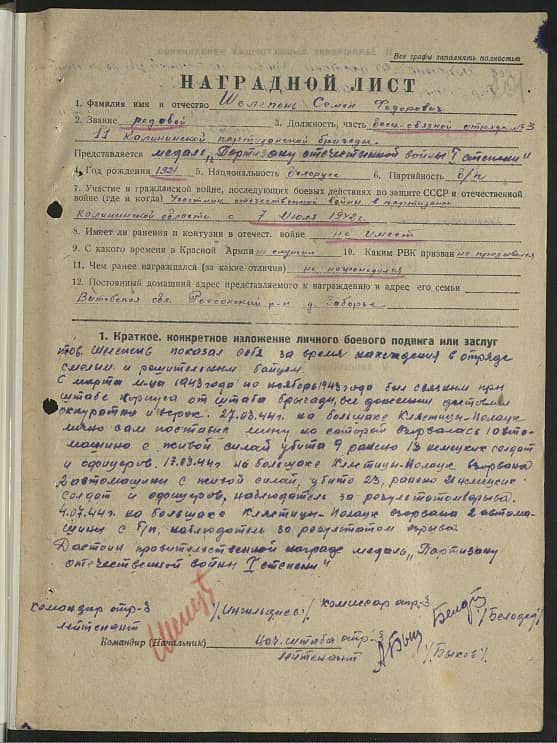 Все графы заполнять полностью
НАГРАДНОЙ ЛИСТ
1. Фамилия имя и отчество Шелепень Семен Федорович
2. Звание рядовой 3. Должность, часть отряда №3
11 Калининской партизанской бригады.
Представляется медаль „Партизану отечественной войны I степени"
4. Год рождения 1921 5. Национальность белорус 6. Партийность б/п
7. Участие в гражданской войне, последующих боевых действиях по защите СССР и отечественной
войне (где и когда) Участник отечественной войны в партизанах
Калининской области с 7 Июля 1942 г.
8. Имеет ли ранения и контузии в отечест. войне не имеет
9. С какого времени в Красной Армии не служил 10. Каким РВК призван не призывался
11. Чем ранее награждался (за какие отличия) не награждался
12. Постоянный домашний адрес представляемого к награждению и адрес его семьи
Витебская обл. Россонский р-н д. Заборье
1. Краткое, конкретное изложение личного боевого подвига или заслуг
тов. Шелепень показал себя за время нахождения в отряде
смелым и решительным бойцом.
С марта м-ца 1943 года по ноябрь 1943 года был связным при
штабе корпуса от штаба бригады, все донесения доставлял
аккуратно и в срок. 27.03.44 г. на большаке Клястицы-Полоцк
лично сам поставил мину на которой взорвалась 1 авто-
машина с живой силой убито 9 ранено 13 немецких солдат
и офицеров. 17.03.44 г на большаке Клястицы-Полоцк взорвана
2 автомашины с живой силой, убито 23, ранено немецких
солдат и офицеров, наблюдатель за результатом взрыва.
4.07.44 г. на большаке Клястицы-Полоцк взорвана 2 автома-
шины с б/п, наблюдатель за результатом взрыва.
Достоин правительственной награде медаль „Партизану
отечественной войны I степени"
Командир отр-3 комиссар отр-3
лейтенант
Командир (Начальник) Нач. штаба отр-3
лейтенант /Быков/